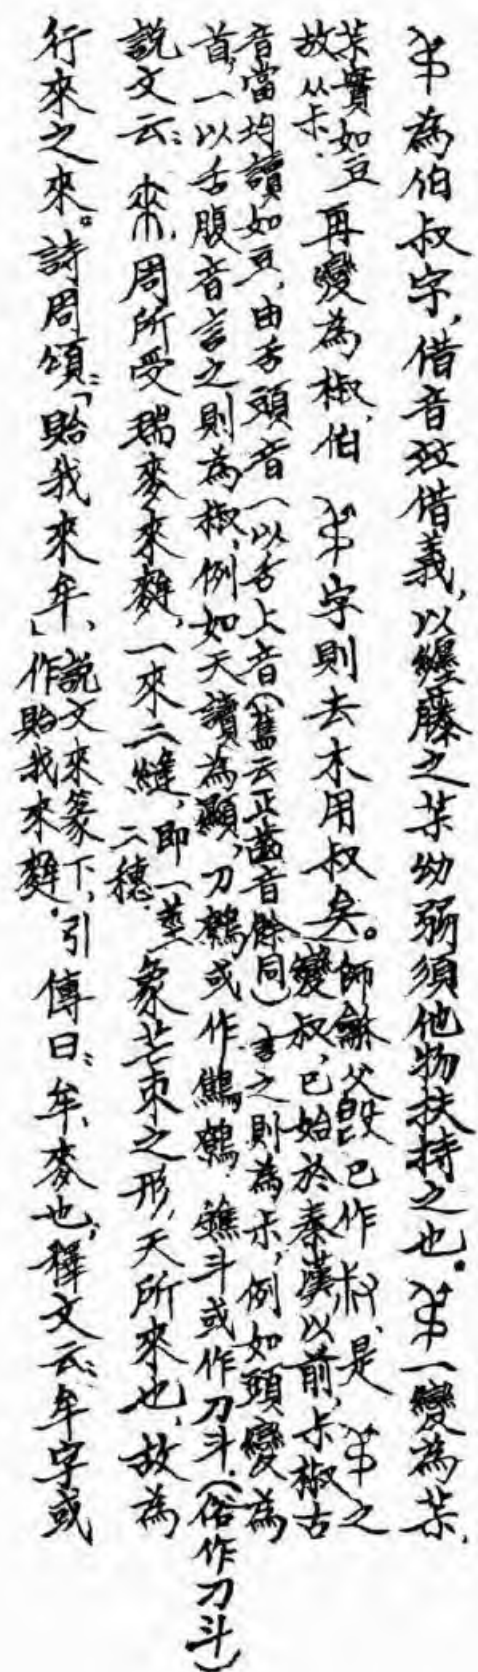 為伯叔字，借音竝借義，以纏藤之茮幼弱須他物扶持之也。一變為茮，
茮實如豆故从尗．再變為椒，伯字則去木用叔矣。師龢父𣪘已作叔，是之變叔，已始於秦漢以前，尗椒古
音當均讀如豆，由舌頭音一以舌上音（舊云正齒音餘同）言之則為尗，例如頭變為
首，一以舌腹音言之則為椒，例如天讀為顯，刀鷯或作鷦鷯．鐎斗或作刀斗．（俗作刁斗）
說文云：來，周所受瑞麥來麰，一來二縫，即一莖二穗．象芒朿之形，天所來也，故為
行來之來。詩周頌：「貽我來牟，」說文來篆下，引作貽我來麰．傳曰：牟，麥也，釋文云：牟字或